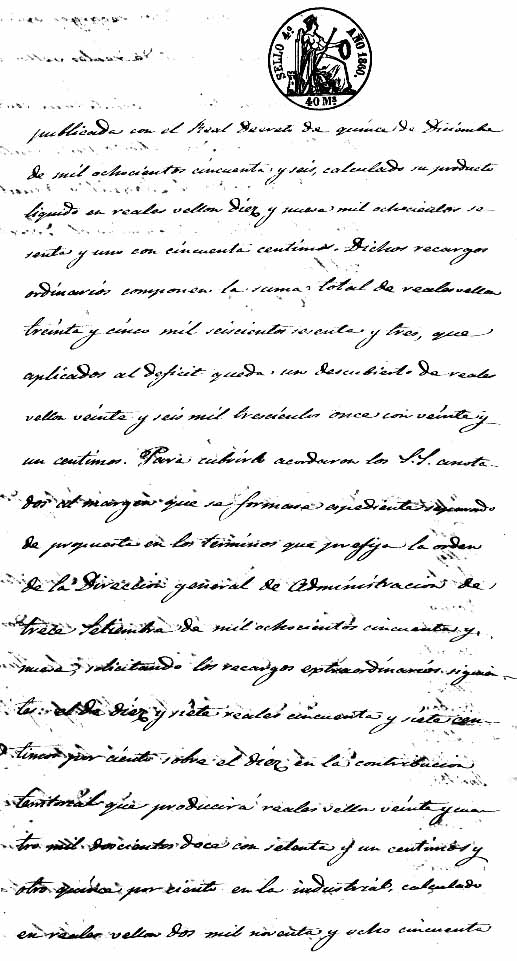 SELLO 4º AÑO 1860.
40 Ms
publicada con el Real Decreto de quince de Diciembre
de mil ochocientos cincuenta y seis, calculado su producto
liquido en reales vellon diez y nueve mil ochocientos se
senta y uno con cincuenta centimos. Dichos recargos
ordinarios componen la suma total de reales vellon
treinta y cinco mil seiscientos sesenta y tres, que
aplicados al deficit queda un descubierto de reales
vellon veinte y seis mil trescientos once con veinte y
un centimos. Para cubrirlo acordaron los S.S. anota
dos al margen que se formase espediente separado
de propuesta en los terminos que prefija la orden
de la Direccion general de Administracion de
trece Setiembre de mil ochocientos cincuenta y
nueve, solicitando los recargos extraordinarios siguien-
tes: el de diez y siete reales cincuenta y siete cen-
timos por ciento sobre el diez en la contribucion
territorial que producirá reales vellon veinte y cua
tro mil doscientos doce con setenta y un centimos y
otro quince por ciento en la industrial, calculado
en reales vellon dos mil noventa y ocho cincuenta